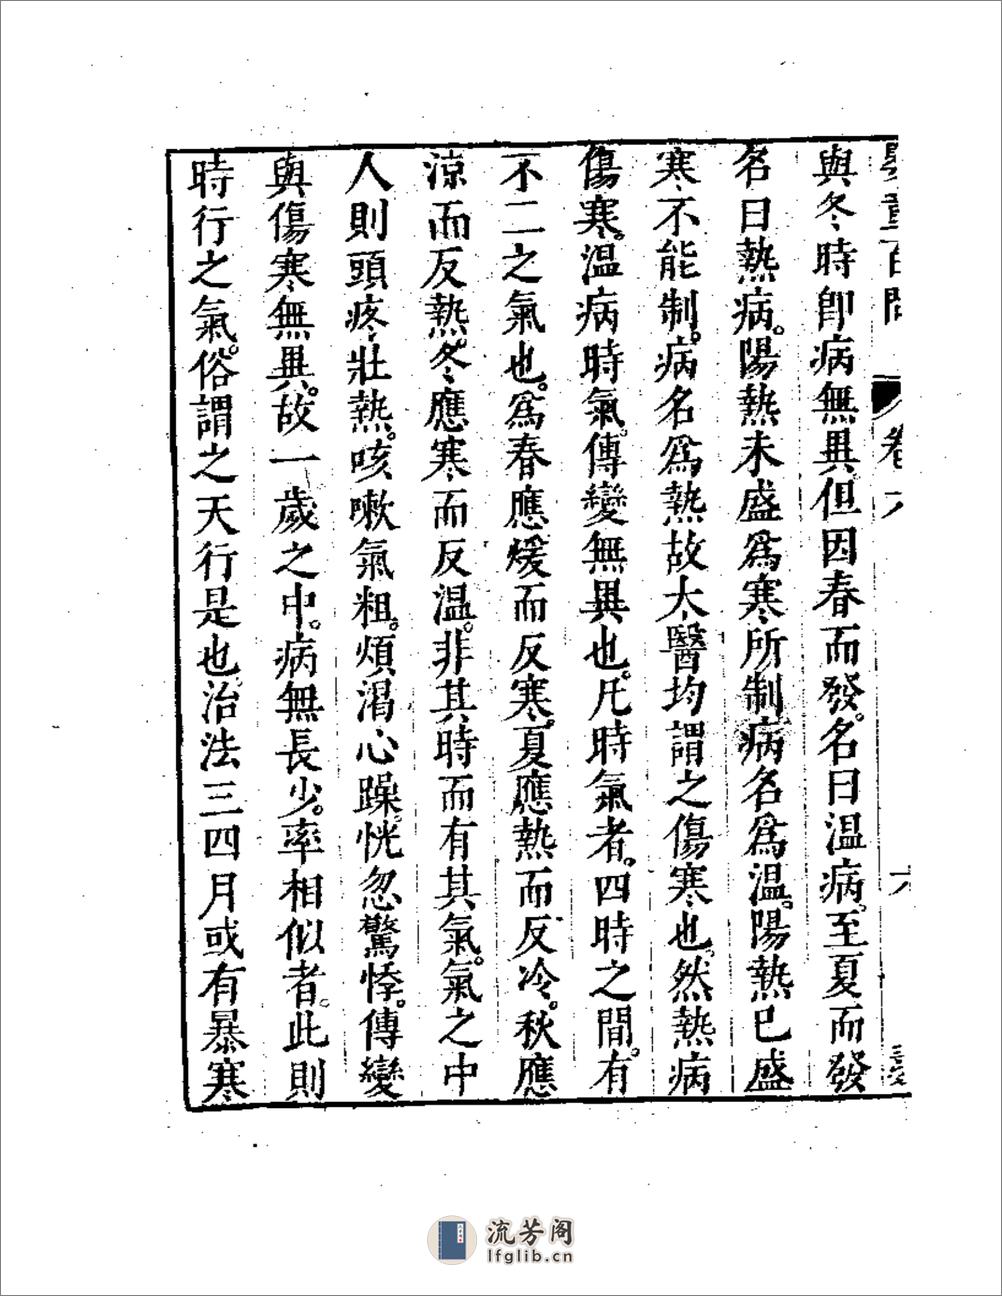 嬰童百問 卷六 六
與冬時卽病無異但因春而發。名曰温病。至夏而發
名曰熱病。陽熱未盛爲寒所制病名爲温。陽熱已盛
寒不能制。病名爲熱故大醫均謂之傷寒也。然熱病
傷寒。温病時氣。傳變無異也。凡時氣者。四時之間。有
不二之氣也。爲春應煖而反寒。夏應熱而反冷。秋應
凉而反熱。冬應寒而反温。非其時而有其氣。氣之中
人則頭疼壯熱。咳嗽氣粗。煩渴心躁。恍忽驚悸。傳變
與傷寒無異。故一歲之中。病無長少。率相似者。此則
時行之氣。俗謂之天行是也。治法三四月或有暴寒
流芳阁
lfglib.cn